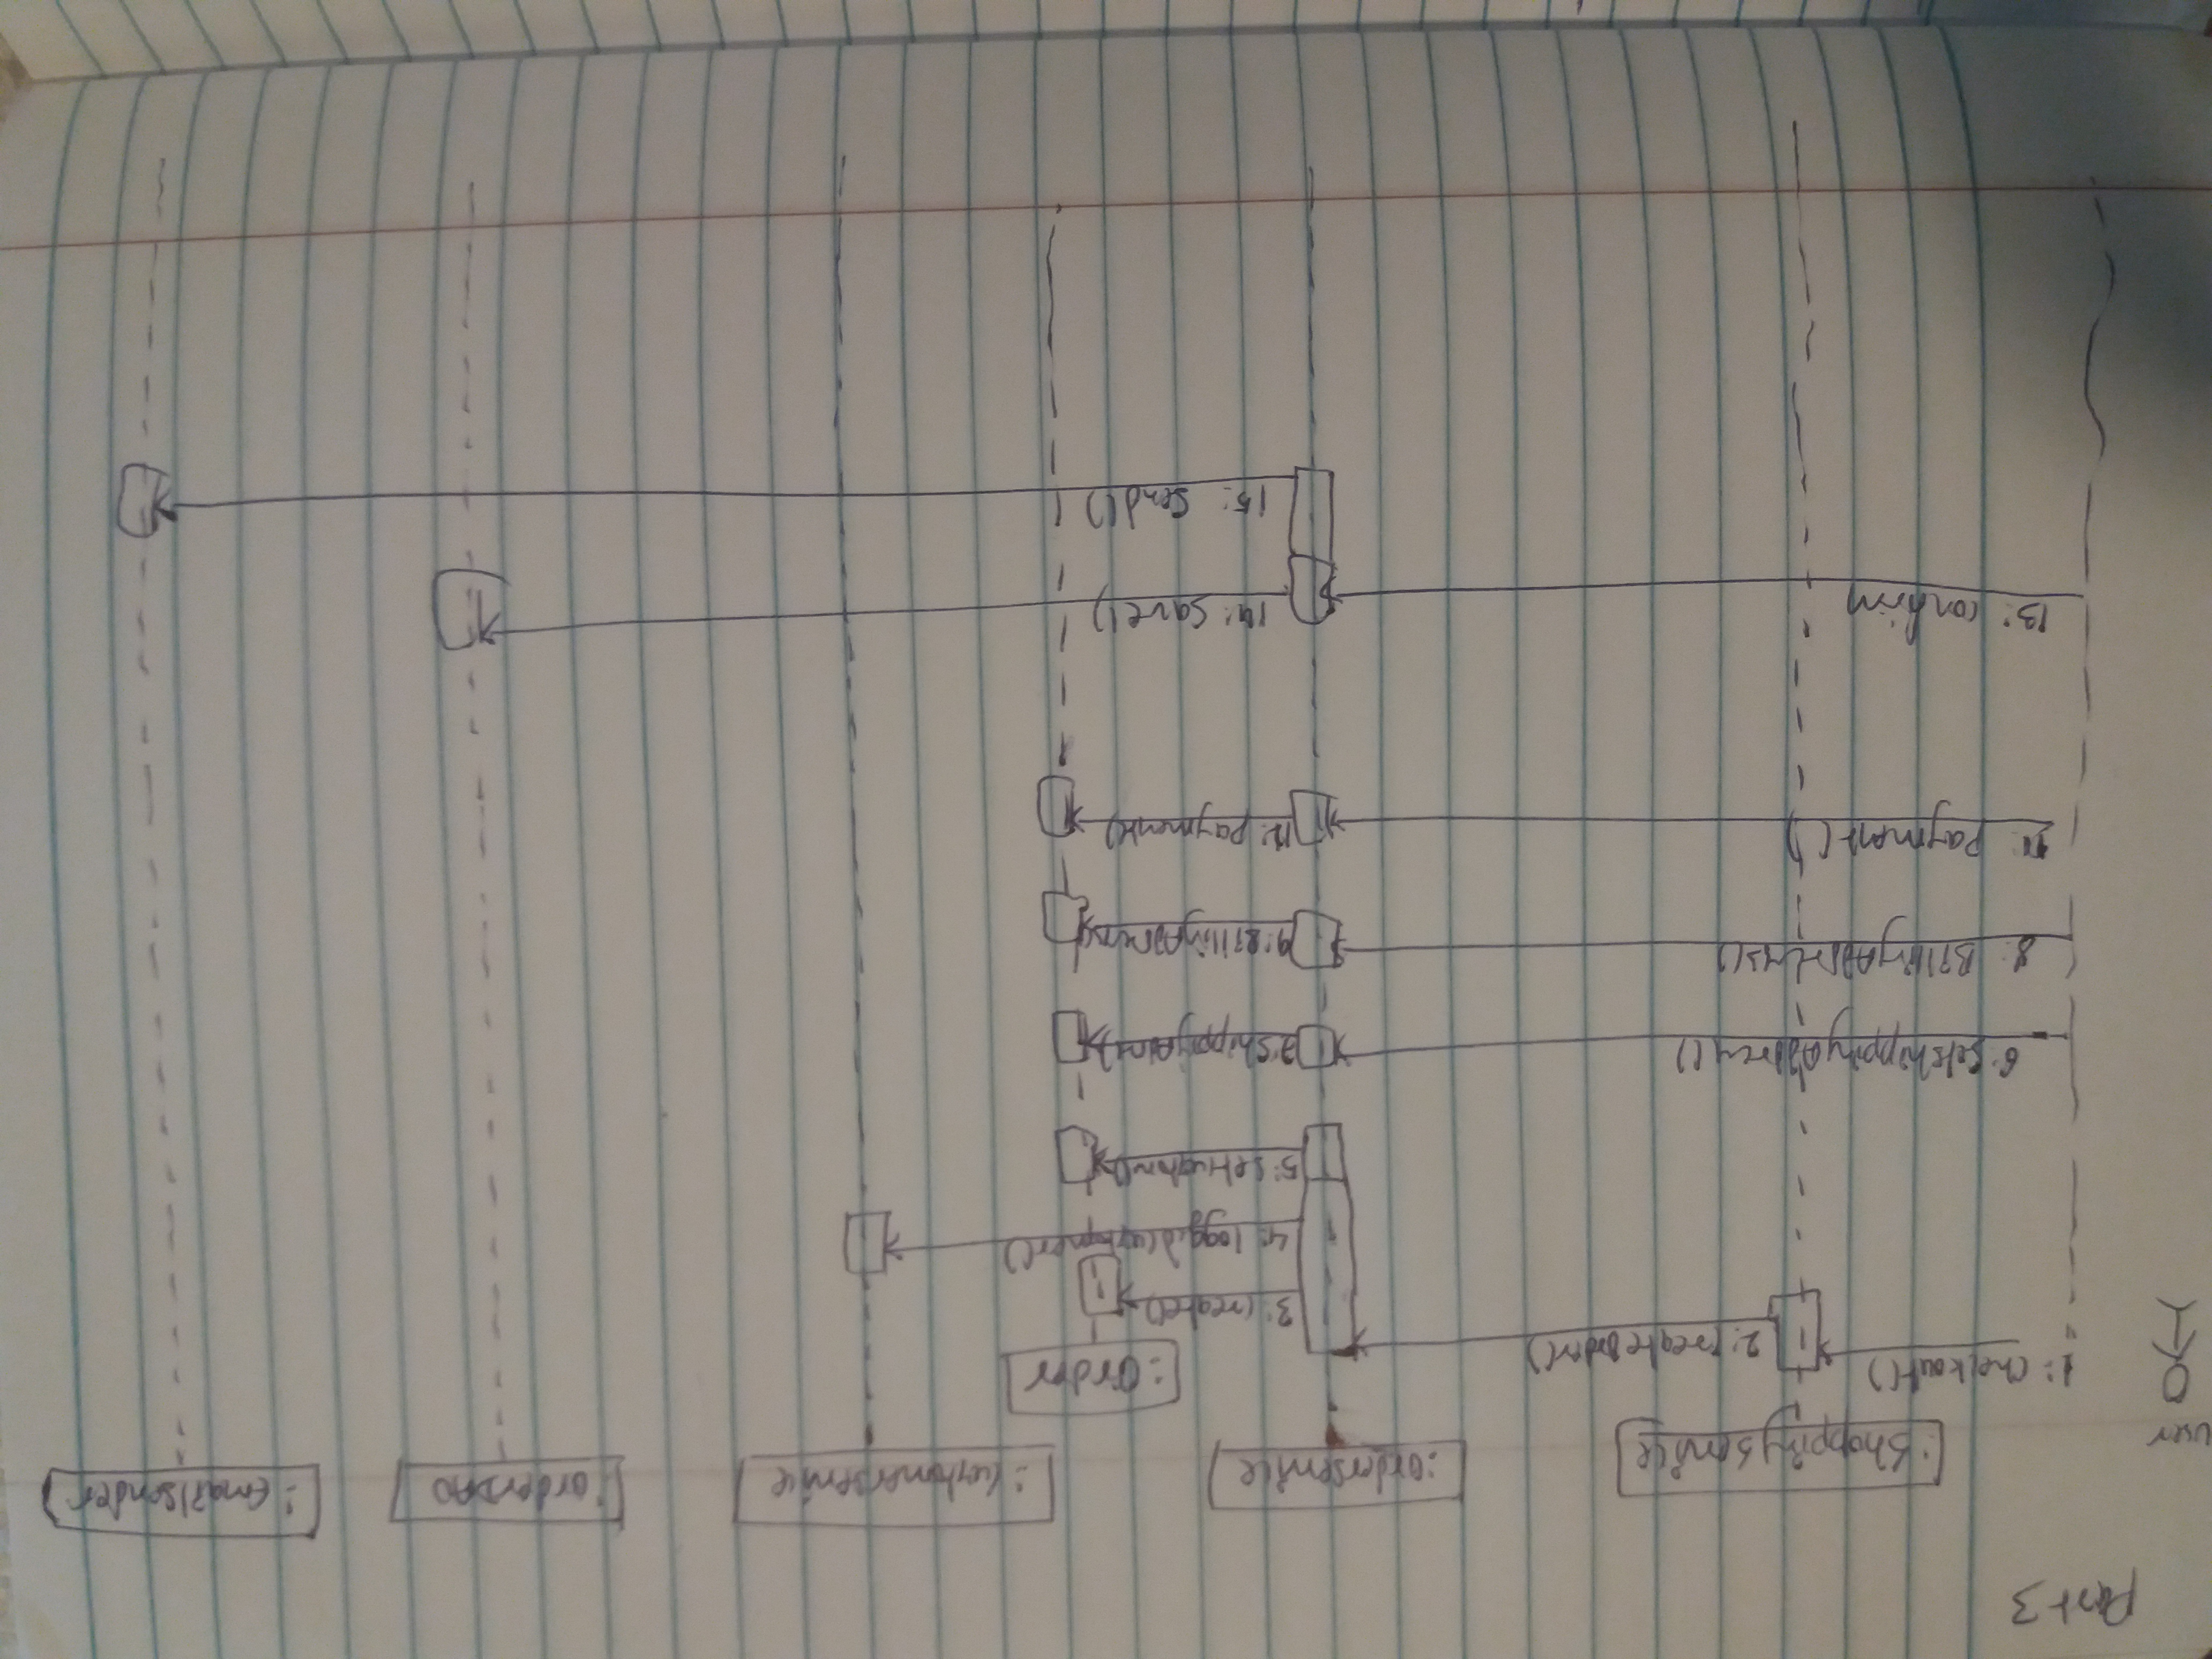 Part 3
User
:ShoppingService
:orderservice
:Order
:customerservice
:orderDAO
:EmailSender
1: Checkout()
2: Createorder()
3: Create()
4: loadcustomer()
5: setcustomer()
6: SetshippingAddress()
7: ShippingAddress
8: BillingAddress()
9: BillingAddress
11: Payment()
12: Payment()
13: confirm
14: Save()
15: Send()